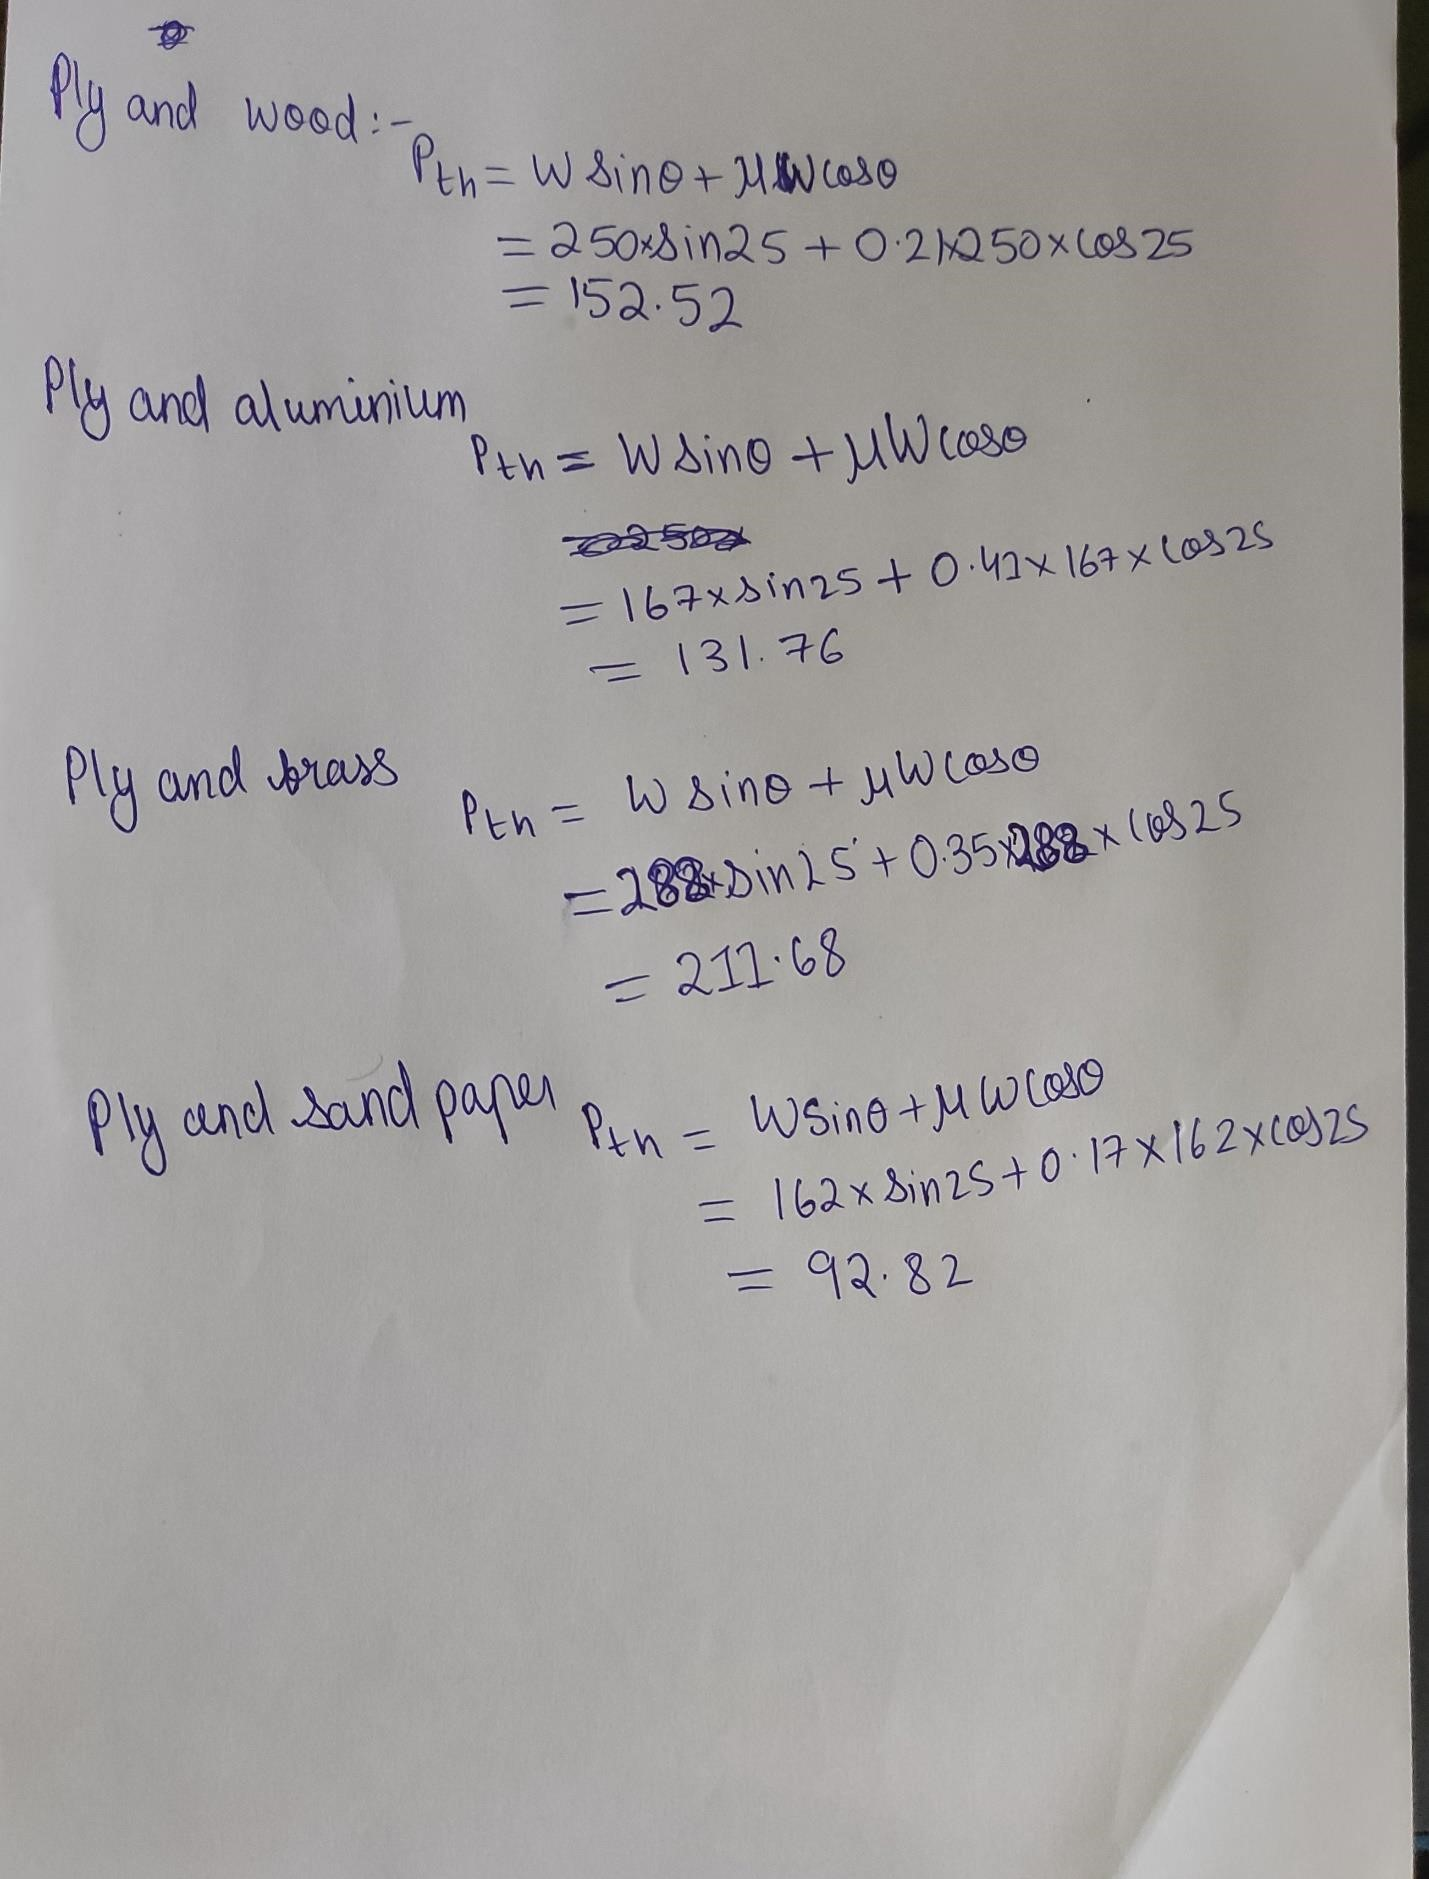 Ply and wood:-
Pth = W sinθ + μWcosθ
= 250×sin25 + 0.21×250×cos25
= 152.52
Ply and aluminium
Pth = W sinθ + μWcosθ
= 167×sin25 + 0.41×167×cos25
= 131.76
Ply and brass
Pth = W sinθ + μWcosθ
= 288×sin25 + 0.35×288×cos25
= 211.68
Ply and sand paper Pth = Wsinθ + μWcosθ
= 162×sin25 + 0.17×162×cos25
= 92.82